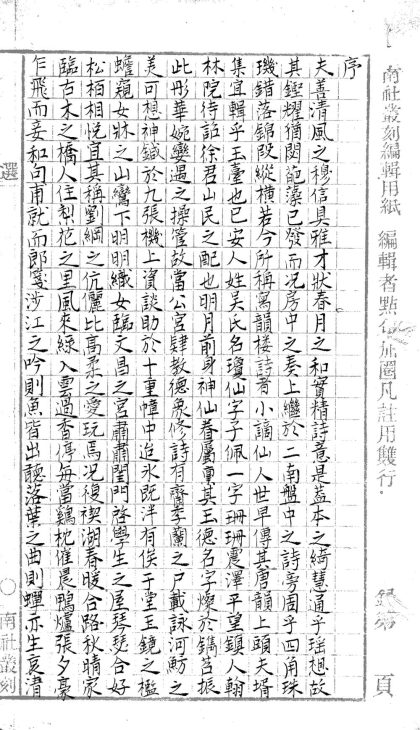 南社叢刻編輯用紙 編輯者點句加圈凡註用雙行。 頁
序
夫善清風之穆信具雅才狀春月之和實精詩意是蓋本之綺慧通乎瑤想故
其鏗耀猶閟葩藻已發而况房中之奏上繼於二南盤中之詩旁周乎四角珠
璣錯落錦段縱橫若今所稱寫韻樓詩者小謫仙人世早傳其唐韻上頭夫壻
集宜輯乎玉臺也已安人姓吳氏名瓊仙字子佩一字珊珊震澤平望鎮人翰
林院待詔徐君山民之配也明月前身神仙眷屬稟其玉德名字燦於鐫苕振
此彤華婉孌過之操管故當公宮肄教德象修詩有齋季蘭之尸載詠河魴之
美可想神鍼於九張機上資談助於十重幃中迨氷既泮有俟于堂玉鏡之檻
蟾窺女牀之山鸞下明明織女臨文昌之宮肅肅閨門啓學生之屋琴瑟合好
松柏相悅宜其稱劉綱之伉儷比高柔之愛玩焉况復禊湖春暖合路秋晴家
臨古木之橋人住梨花之里風來綠入雲過香停每當鷄枕催晨鴨爐張夕豪
乍飛而妾和句甫就而郎箋涉江之吟則魚皆出聽落葉之曲則蟬亦生哀清
選
南社叢刻